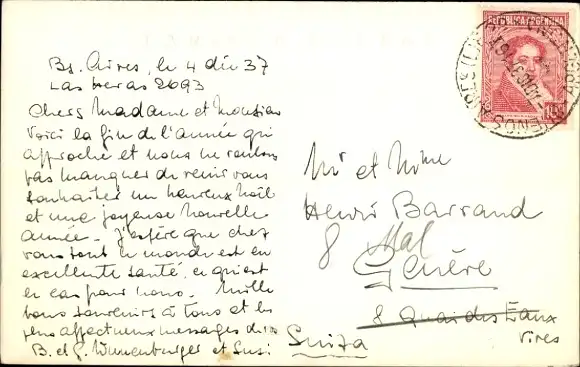 Bs. Aires, le 4 déc 37
Las Heras 2693
Chers Madame et Monsieur
Voici la fin de l'année qui
approche et nous ne voulons
pas manquer de venir vous
souhaiter un heureux Noël
et une joyeuse nouvelle
année. J'espère que chez
vous tout le monde est en
excellente santé, ce qui est
le cas pour nous. Mille
bons souvenirs à tous et les
plus affectueux messages de
B. et G. Wunenburger et Susi
REPUBLICA ARGENTINA
10
BUENOS AIRES
Mr et Mme
Henri Barrand
8 Mal
Genève
8 Quai des Eaux
Vives
Suiza